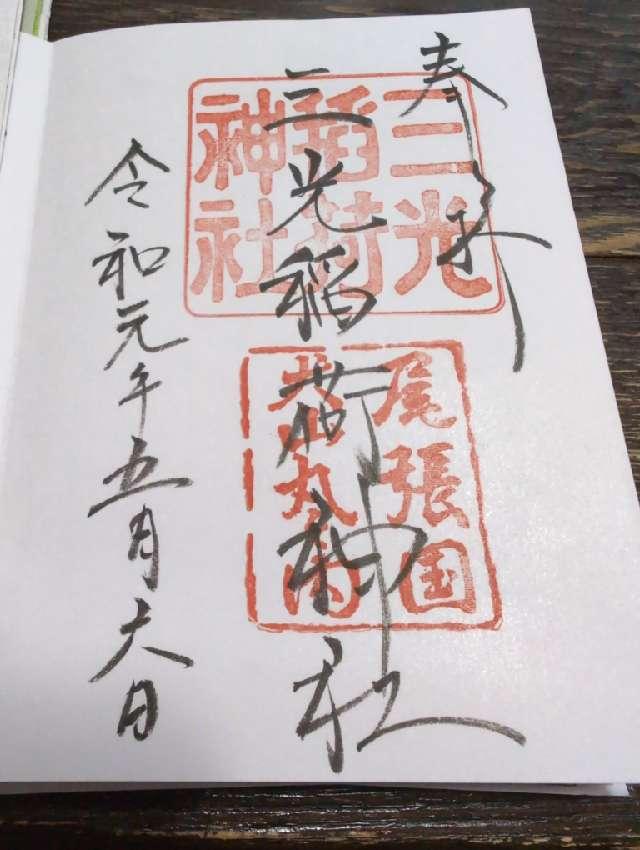 奉拝
三光稲荷神社
三光
稲荷
神社
尾張国
犬山丸の内
令和元年五月六日